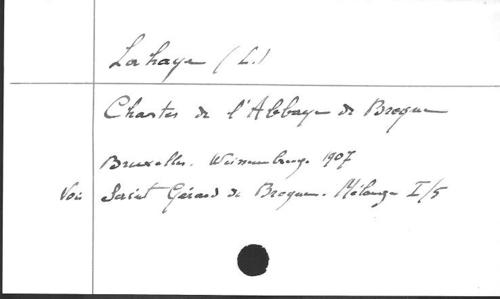 Lahaye (L.)
Chartes de l'Abbaye de Brogne
Bruxelles. Weissenbruch 1907
Voir Saint Gérard de Brogne. Mélanges I/5